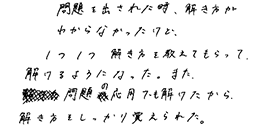 問題を出された時、解き方が
わからなかったけど、
1つ1つ解き方を教えてもらって、
解けるようになった。また、
問題の応用でも解けたから、
解き方をしっかり覚えられた。